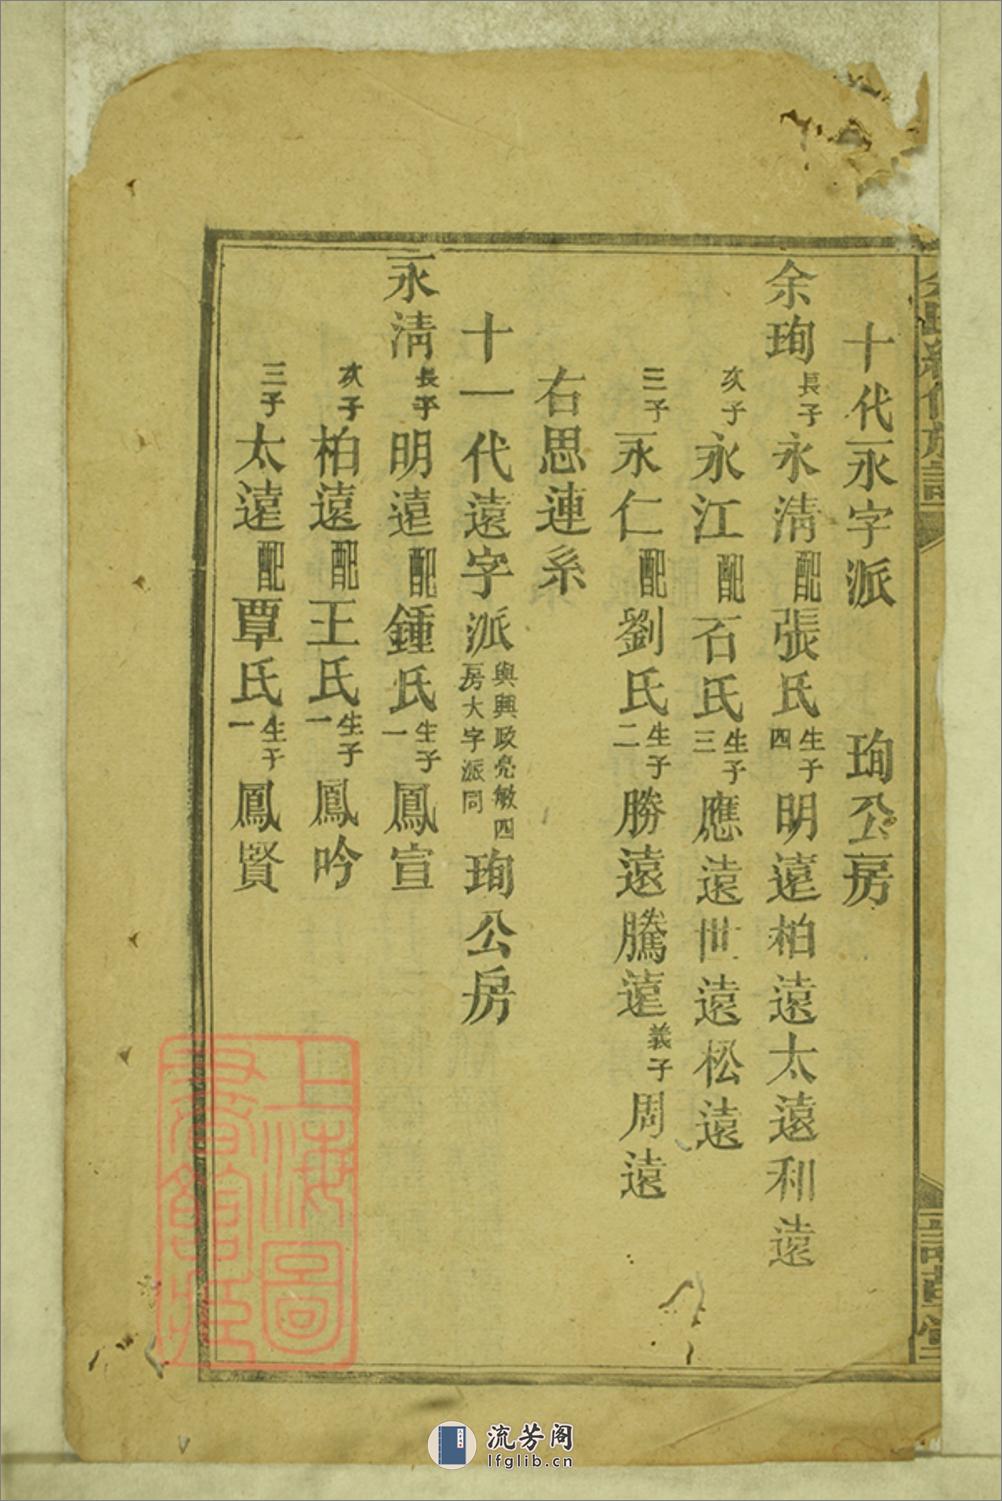 十代永字派 珣公房
余珣長子永清配張氏生子四明遠柏遠太遠利遠
次子永江配石氏生子三應遠世遠松遠
三子永仁配劉氏生子二勝遠騰遠義子周遠
右思連系
十一代遠字派與興政亮敏四房大字派同珣公房
永清長子明遠配鍾氏生子一鳳宣
次子柏遠配王氏生子一鳳吟
三子太遠配覃氏生子一鳳賢
上海圖書館藏
流芳阁
lfglib.cn